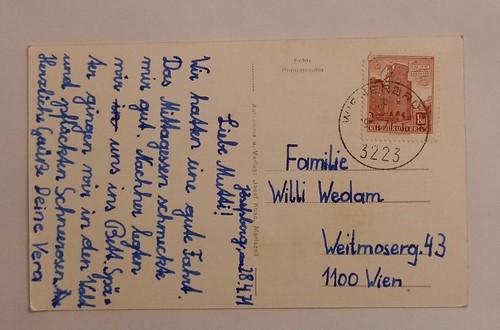 am 28.4.71
Liebe Mutti!
Wir hatten eine gute Fahrt.
Das Mittagessen schmeckte
mir gut. Nachher legten
wir uns ins Bett. Spä=
ter gingen wir in den Wald
und pflückten Schneerosen.
Herzliche Grüße Deine Vera
Echte
Photographie
Aufnahme u. Verlag: Josef Kuss, Mariazell
3223
Familie
Willi Wedam
Weitmoserg. 43
1100 Wien